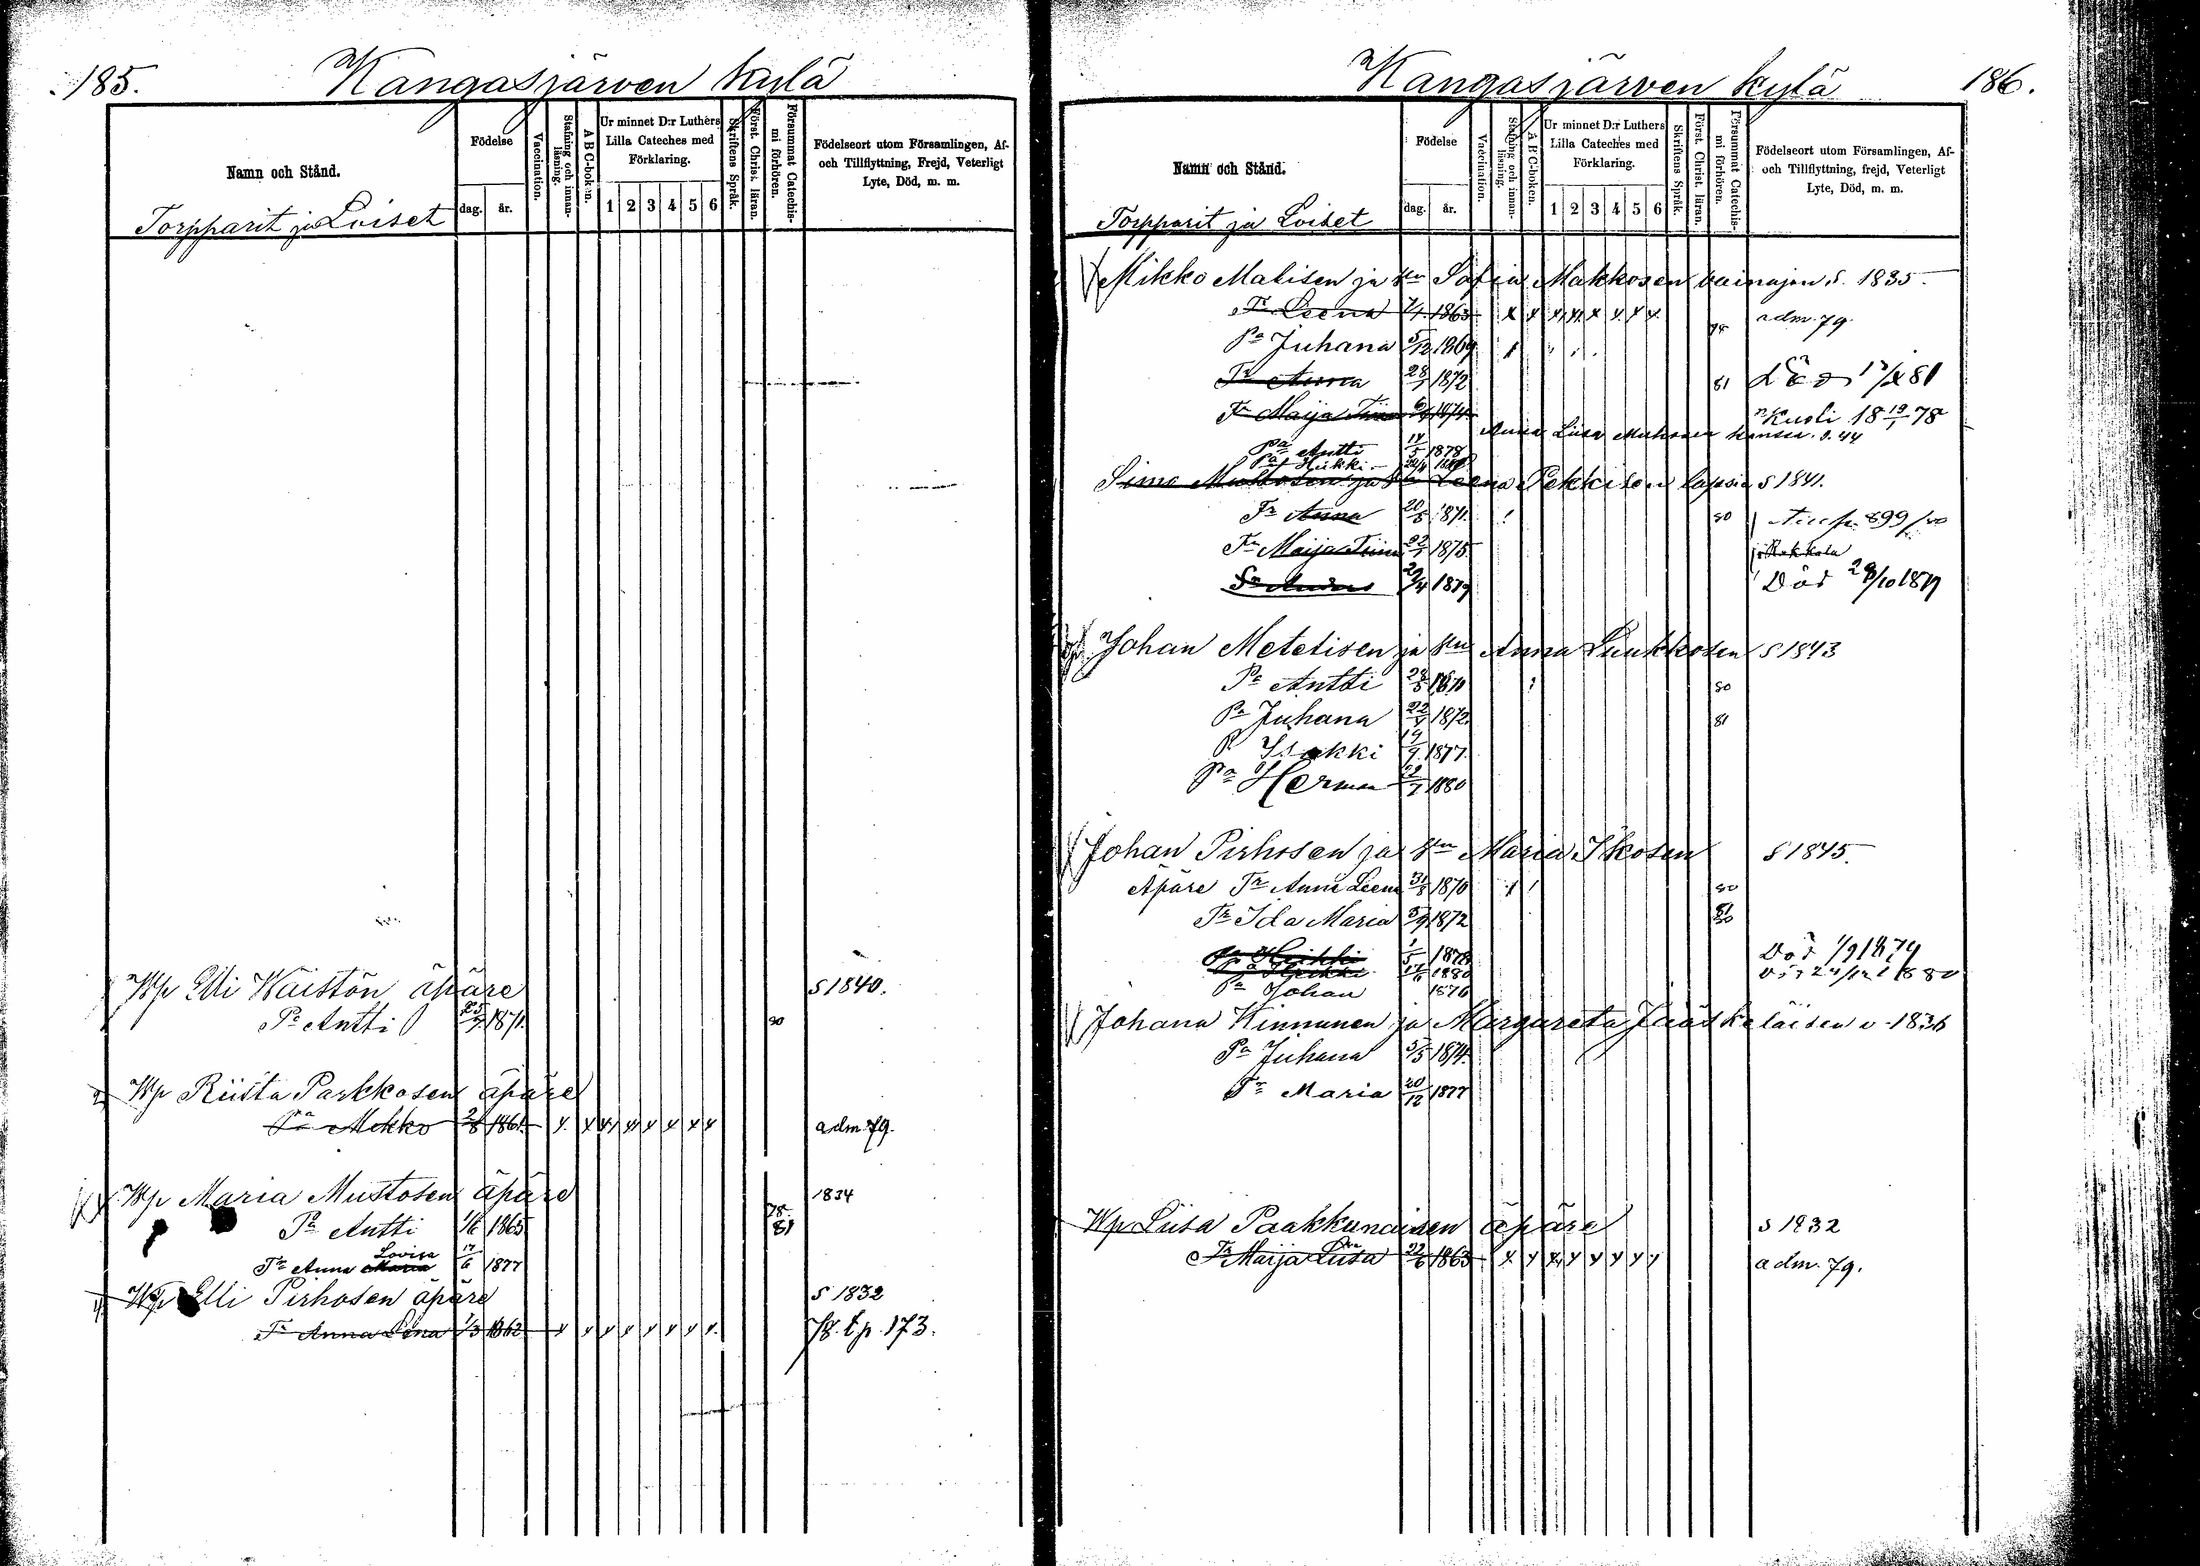 185.
Kangasjärven kylä
Namn och Stånd.
Födelse
dag.
år.
Vaccination.
Stafning och innan-läsning.
A B C-boken.
Ur minnet D:r Luthers Lilla Cateches med Förklaring.
1 2 3 4 5 6
Skriftens Språk.
Först. Christ. läran.
Försummat Catechismi förhören.
Födelseort utom Församlingen, Af- och Tillflyttning, Frejd, Veterligt Lyte, Död, m. m.
Torpparit ja Loiset
Wp Elli Waistön äpäre S 1840.
Pa Antti 1871. 80
Wp Riista Parkkosen äpäre
Pa Mikko 2/8 1861. adm. 79.
Wp Maria Mustosen äpäre 1834
Pa Antti 1/6 1865 78. 81
Lovisa
Tr Anna Maria 17/6 1877
Wp Elli Pirhosen äpäre S 1832
Tr Anna Lena 1/3 1862 78. tp. 173.
186.
Kangasjärven kylä
Namn och Stånd.
Födelse
dag.
år.
Vaccination.
Stafning och innan-läsning.
A B C-boken.
Ur minnet D:r Luthers Lilla Cateches med Förklaring.
1 2 3 4 5 6
Skriftens Språk.
Först. Christ. läran.
Försummat Catechismi förhören.
Födelseort utom Församlingen, Af- och Tillflyttning, frejd, Veterligt Lyte, Död, m. m.
Torpparit ja Loiset
Mikko Matisen ja Sofia Makkosen vainajan S. 1835
Tr Leena 1863 adm. 79.
Pa Juhana 5/12 1869
Tr Anna 28/7 1872 81
Tr Maija Tiina 1874 Kuoli 18 19/1 78
Anna Liisa Muhosen kanssa. S. 44
Pa Antti 14/5 1878
Pa Heikki
Simo Mustosen ja Leena Pekkisen lapsia S 1841.
Tr Anna 20/5 1871. 80
Tr Maija Tiina 1875
Sr Anders 1879 Död 28/10 1879
Johan Metetisen ja Anna Luukkosen S 1843
Pa Antti 28/5 1870 80
Pa Juhana 22/4 1872. 81
P Isakki 19/9 1877.
Pa Herman 1880
Johan Pirhosen ja Maria Ikosen S 1845.
Äpäre Tr Anna Leena 31/8 1870 80
Tr Ida Maria 5/9 1872 81
Pa Heikki 1/5 1878 Död 1/9 1879
Pa Heikki 1880
Pa Johan 1876
Johana Kinnunen ja Margareta Jääskeläisen 1836
Pa Juhana 5/5 1874.
Tr Maria 20/12 1877
Wp Liisa Paakkunaisen äpäre S 1832
Tr Maija Liisa 22/6 1863 adm. 79.